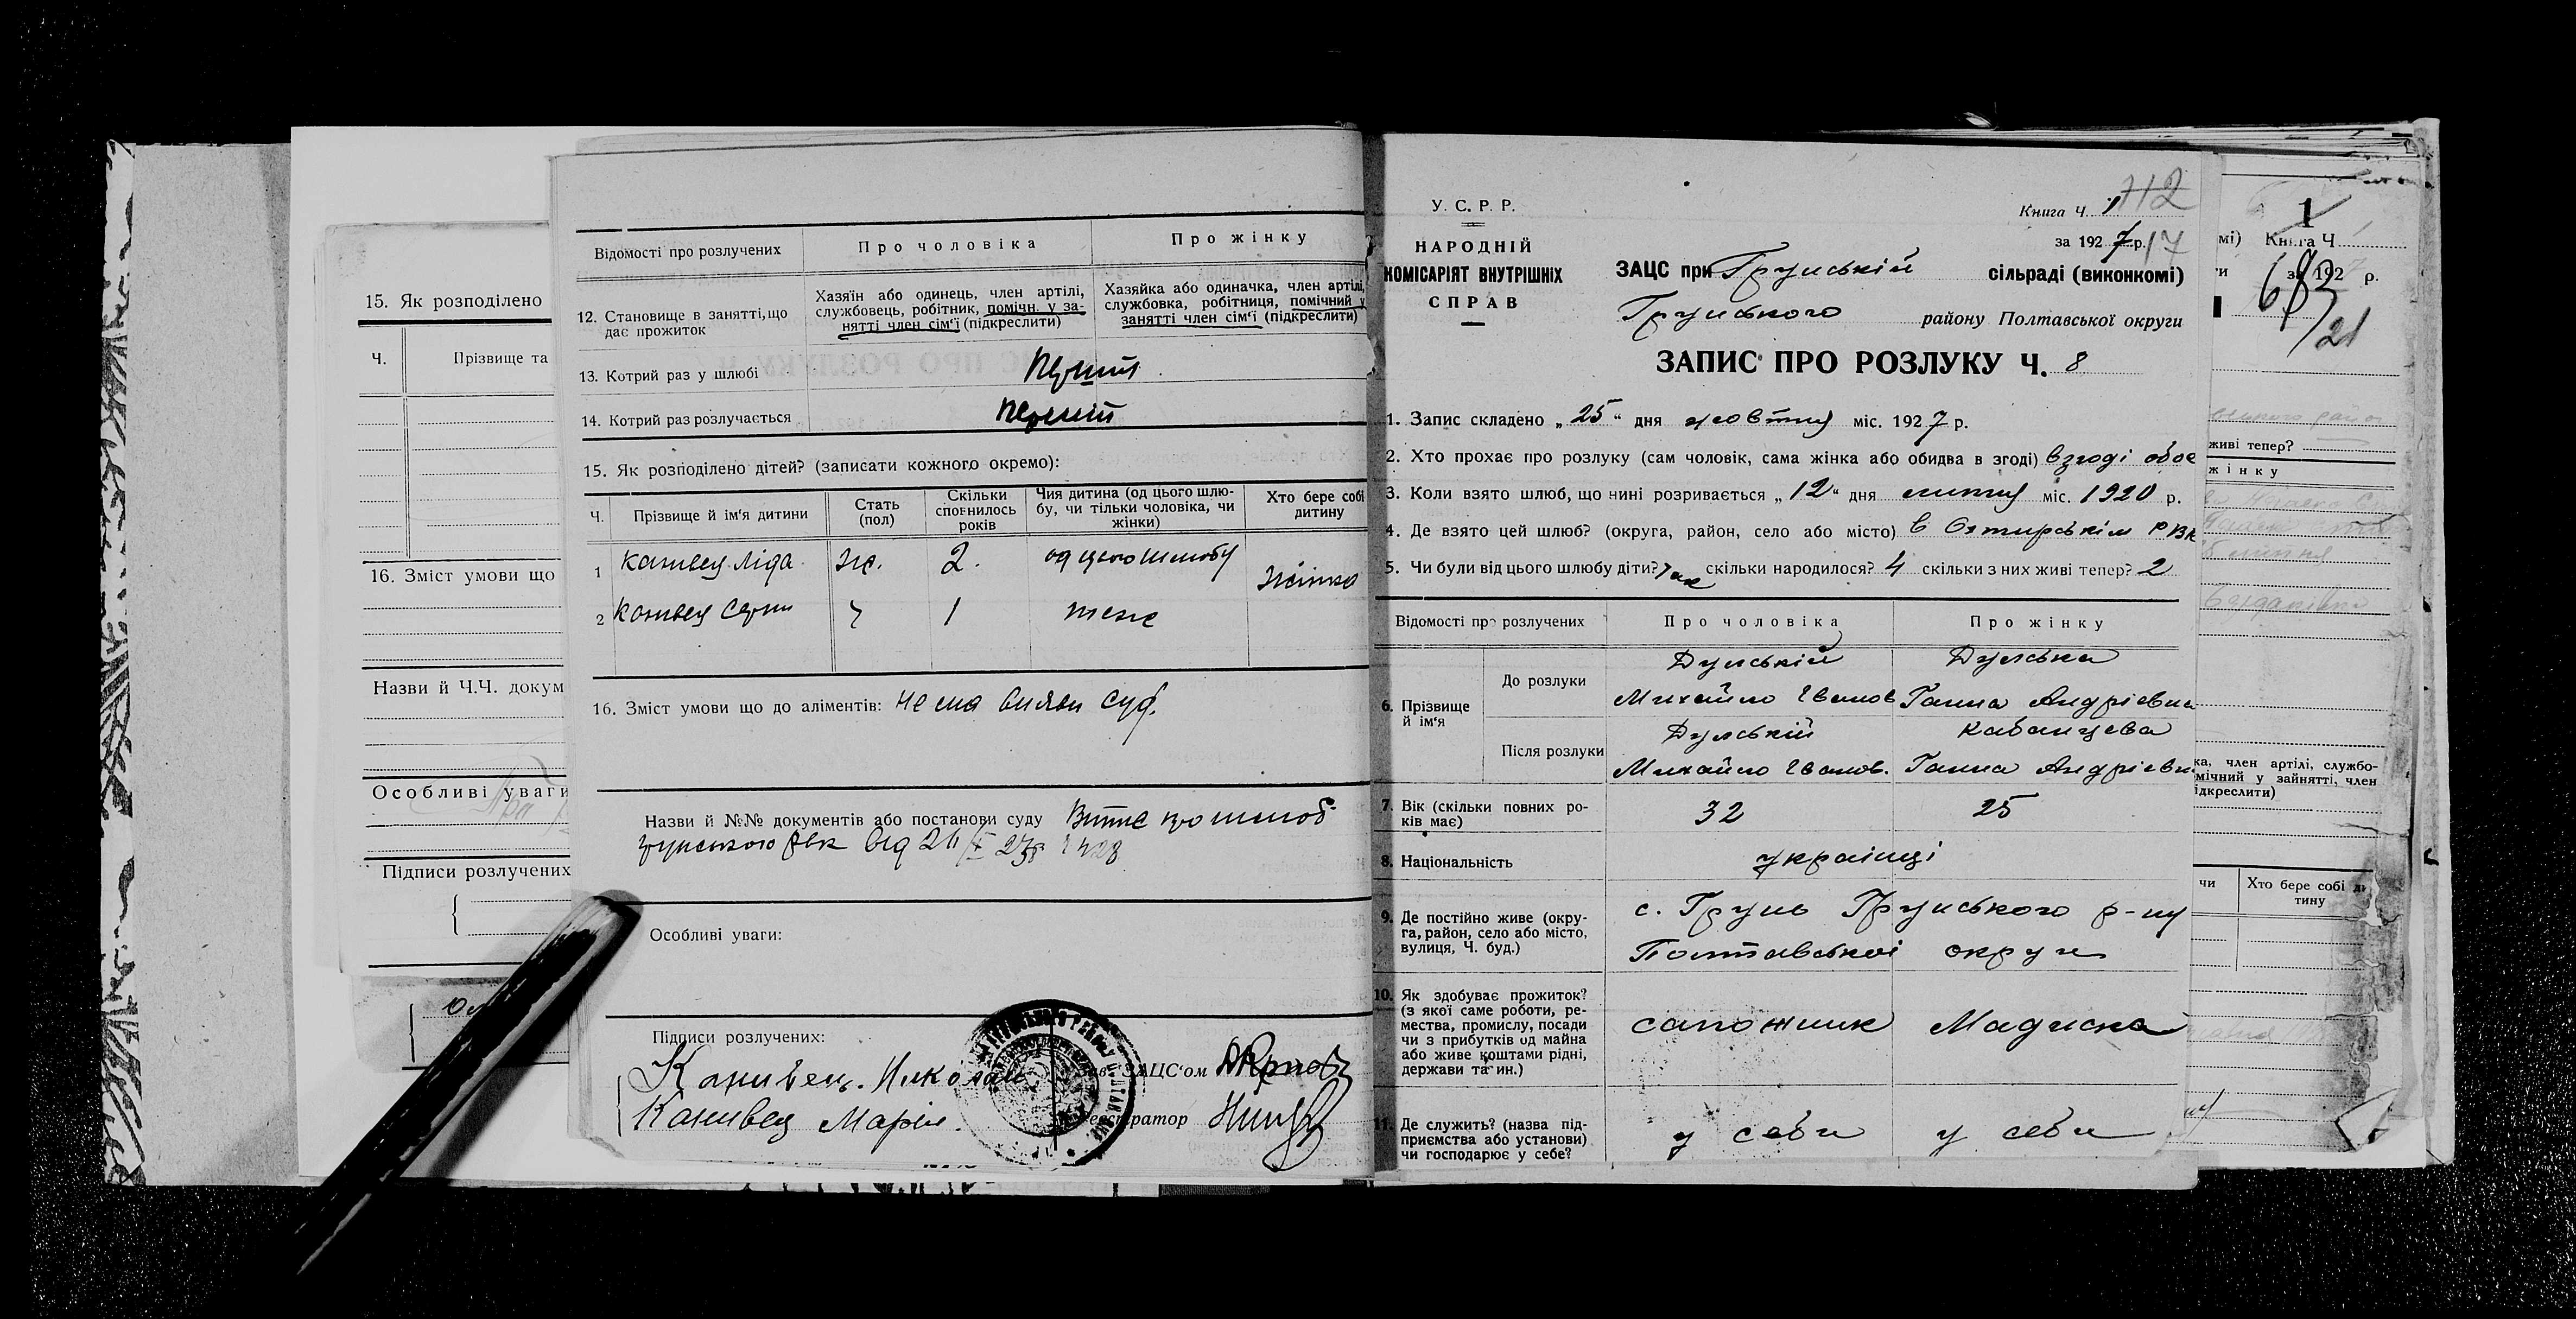 15. Як розподілено
Ч.
Прізвище та
16. Зміст умови що
Назви й Ч.Ч. докум
Особливі уваги
Підписи розлучених
Відомості про розлучених
Про чоловіка
Про жінку
12. Становище в занятті, що
дає прожиток
Хазяїн або одинець, член артілі,
службовець, робітник, помічн. у за-
нятті член сім'ї (підкреслити)
Хазяйка або одиначка, член артілі,
службовка, робітниця, помічний у
занятті член сім'ї (підкреслити)
13. Котрий раз у шлюбі
перший
14. Котрий раз розлучається
перший
15. Як розподілено дітей? (записати кожного окремо):
Ч.
Прізвище й ім'я дитини
Стать
(пол)
Скільки
сповнилось
років
Чия дитина (од цього шлю-
бу, чи тільки чоловіка, чи
жінки)
Хто бере собі
дитину
1 Канивец Ліда ж. 2. од цього шлюбу жінка
2 Канивец 1 теж
16. Зміст умови що до аліментів: нема
Назви й №№ документів або постанови суду Витяг про шлюб
грунського рвк від
Особливі уваги:
Підписи розлучених:
Канивец. Николай
Канивец Марія.
ЗАЦС'ом
Реєстратор
У. С. Р. Р.
НАРОДНІЙ
КОМІСАРІЯТ ВНУТРІШНІХ
СПРАВ
Книга Ч. 1
712
за 1927 р. 17
ЗАЦС при Грунській сільраді (виконкомі)
Грунського району Полтавської округи
ЗАПИС ПРО РОЗЛУКУ Ч. 8
1. Запис складено „25" дня жовтня міс. 1927 р.
2. Хто прохає про розлуку (сам чоловік, сама жінка або обидва в згоді) в згоді обоє
3. Коли взято шлюб, що нині розривається „12" дня лютня міс. 1920 р.
4. Де взято цей шлюб? (округа, район, село або місто) в Охтирськім РВК
5. Чи були від цього шлюбу діти? так скільки народилося? 4 скільки з них живі тепер? 2
Відомості про розлучених
Про чоловіка
Про жінку
6. Прізвище
й ім'я
До розлуки
Михайло Іванов
Ганна Андрієвна
Після розлуки
Кабанцева
Михайло Іванов.
Ганна Андрієвн
7. Вік (скільки повних ро-
ків має)
32
25
8. Національність
українці
9. Де постійно живе (окру-
га, район, село або місто,
вулиця, Ч. буд.)
с. Грунь Грунського р-ну
Полтавської округи
10. Як здобуває прожиток?
(з якої саме роботи, ре-
мества, промислу, посади
чи з прибутків од майна
або живе коштами рідні,
держави та ин.)
сапожник
11. Де служить? (назва під-
приємства або установи)
чи господарює у себе?
у себи
у себи
1
мі) Книга Ч
за 192 р.
683
21
живі тепер?
жінку
ка, член артілі, службо-
мічний у зайнятті, член
ідкреслити)
чи
Хто бере собі ди
тину